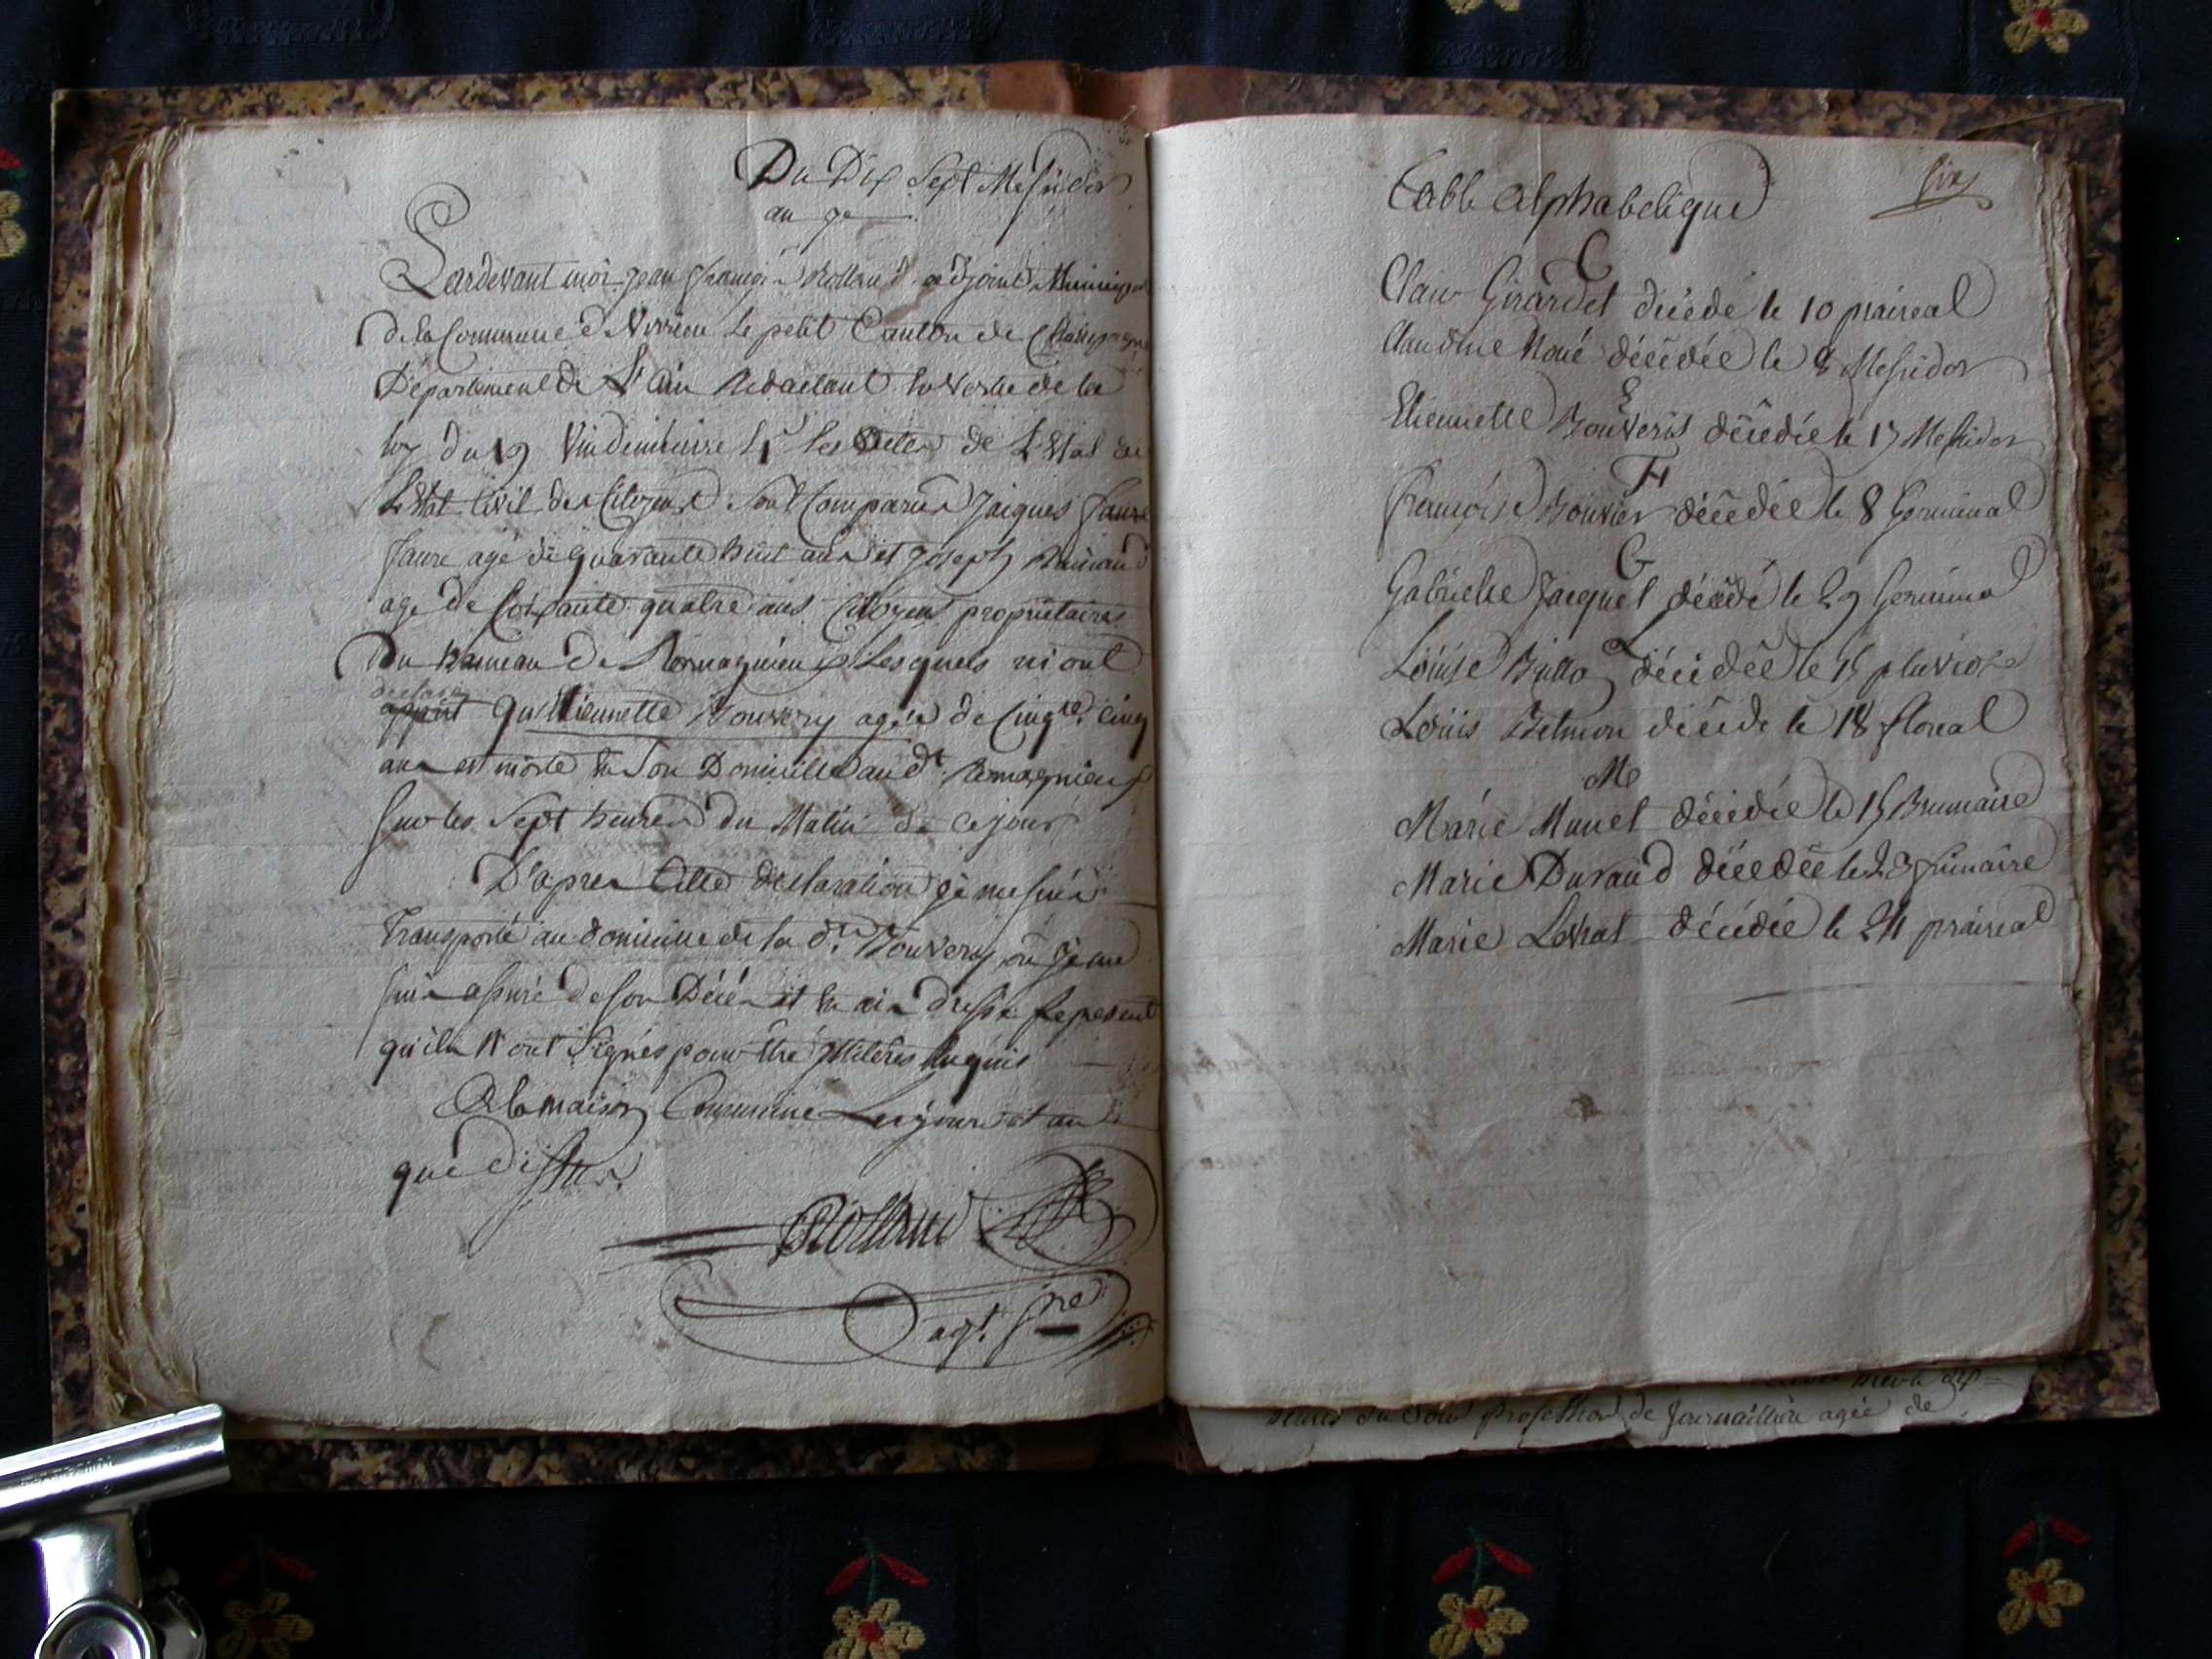 Du Dix Sept Messidor
an
Pardevant moi Jean françois Rolland adjoint Municipal
de la Commune de Virieu le petit Canton de Champagne
Département de L'ain Redactant la vertu de la
loy du 19 Vindémiaire les de L'Etat
L'Etat Civil des Citoyens sont Comparus Jaiques faure
faure agé de quarante huit ans et joseph
age de Soixante quatre ans Citoyens propriétaires
du hameau de Romagnieux Lesquels m'ont
declaré
qu'Etiennette Bouvery agée de Cinqte. Cinq
ans est morte en Son Domicille audt. Romagnieux
sur les Sept heures du Matin de ce jour
D'apres Cette declaration je me suis
Transporté au domicille de la dte. Bouvery ou je me
suis assuré de son Décés et en ai dressé le present
qu'ils n'ont Signés pour être illiterés Enquis
A la maison Commune Les jour et an
que dessus.
Rolland
agt.
Table alphabetique
six
C
Clair Girardet décédé le 10 praireal
Claudine décédée le 8 Messidor
E
Etiennette Bouveris décédée le 17 Messidor
F
françoise Bouvier décédée le 8 Germinal
G
Gabrielle Jacquet décédé le 29 Germinal
L
Louise décédée le 15 pluviose
Louis Belmon décédé le 18 floreal
M
Marie Munet décédée le 15 Brumaire
Marie Durand décédée le 23 frimaire
Marie Lovat décédée le 24 prairéal
heures du Soir profession de journaillière agée de